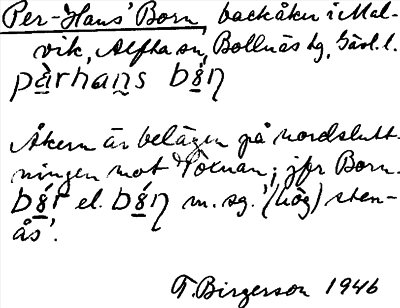 Per-Hans' Born, backåker i Mal-
vik, Alfta sn, Bollnäs tg, Gävl. l.
pàrhans bǿn
Åkern är belägen på nordslutt-
ningen mot Voxnan; jfr Born.
bǿr el. bǿn m. sg. '(hög) sten-
ås'.
T. Birgerson 1946